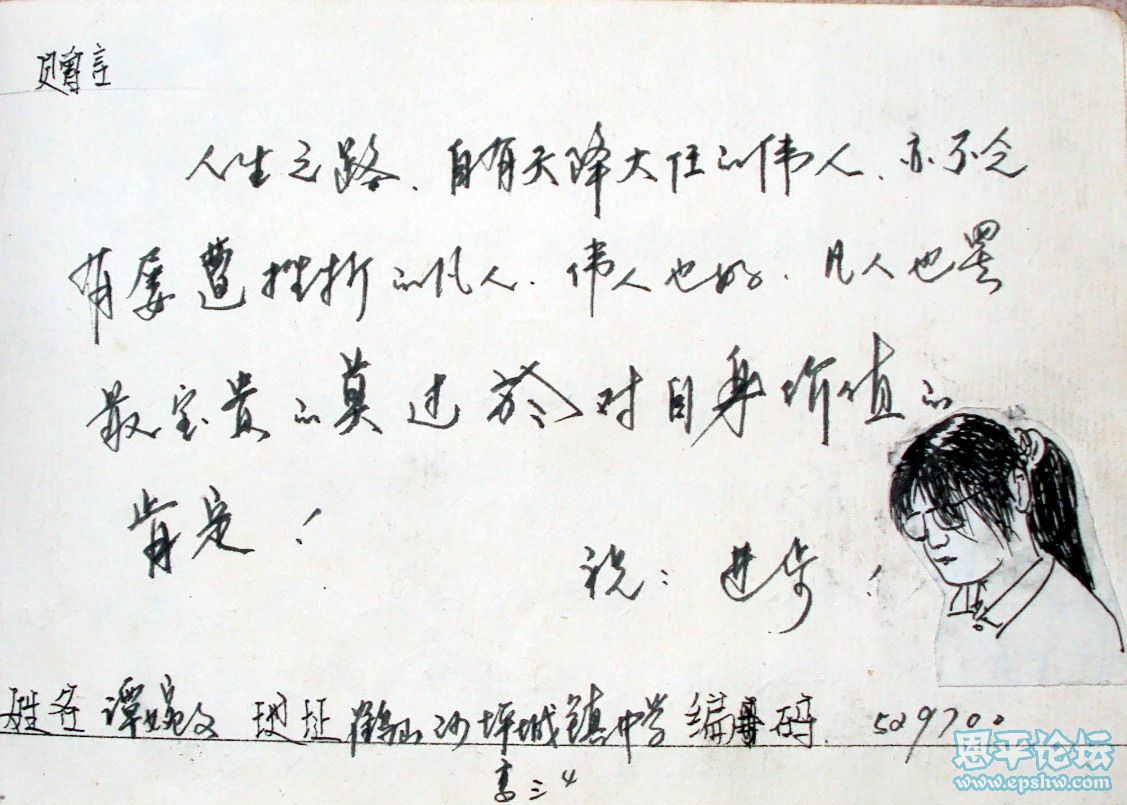 赠言
人生之路、自有天降大任的伟人、亦不乏
有屡遭挫折的凡人、伟人也好、凡人也罢
最宝贵的莫过於对自身价值的
肯定!
祝:进步!
姓名 谭婉文 地址 鹤山沙坪城镇中学 编码 529700
高三4
恩平论坛
www.epshw.com